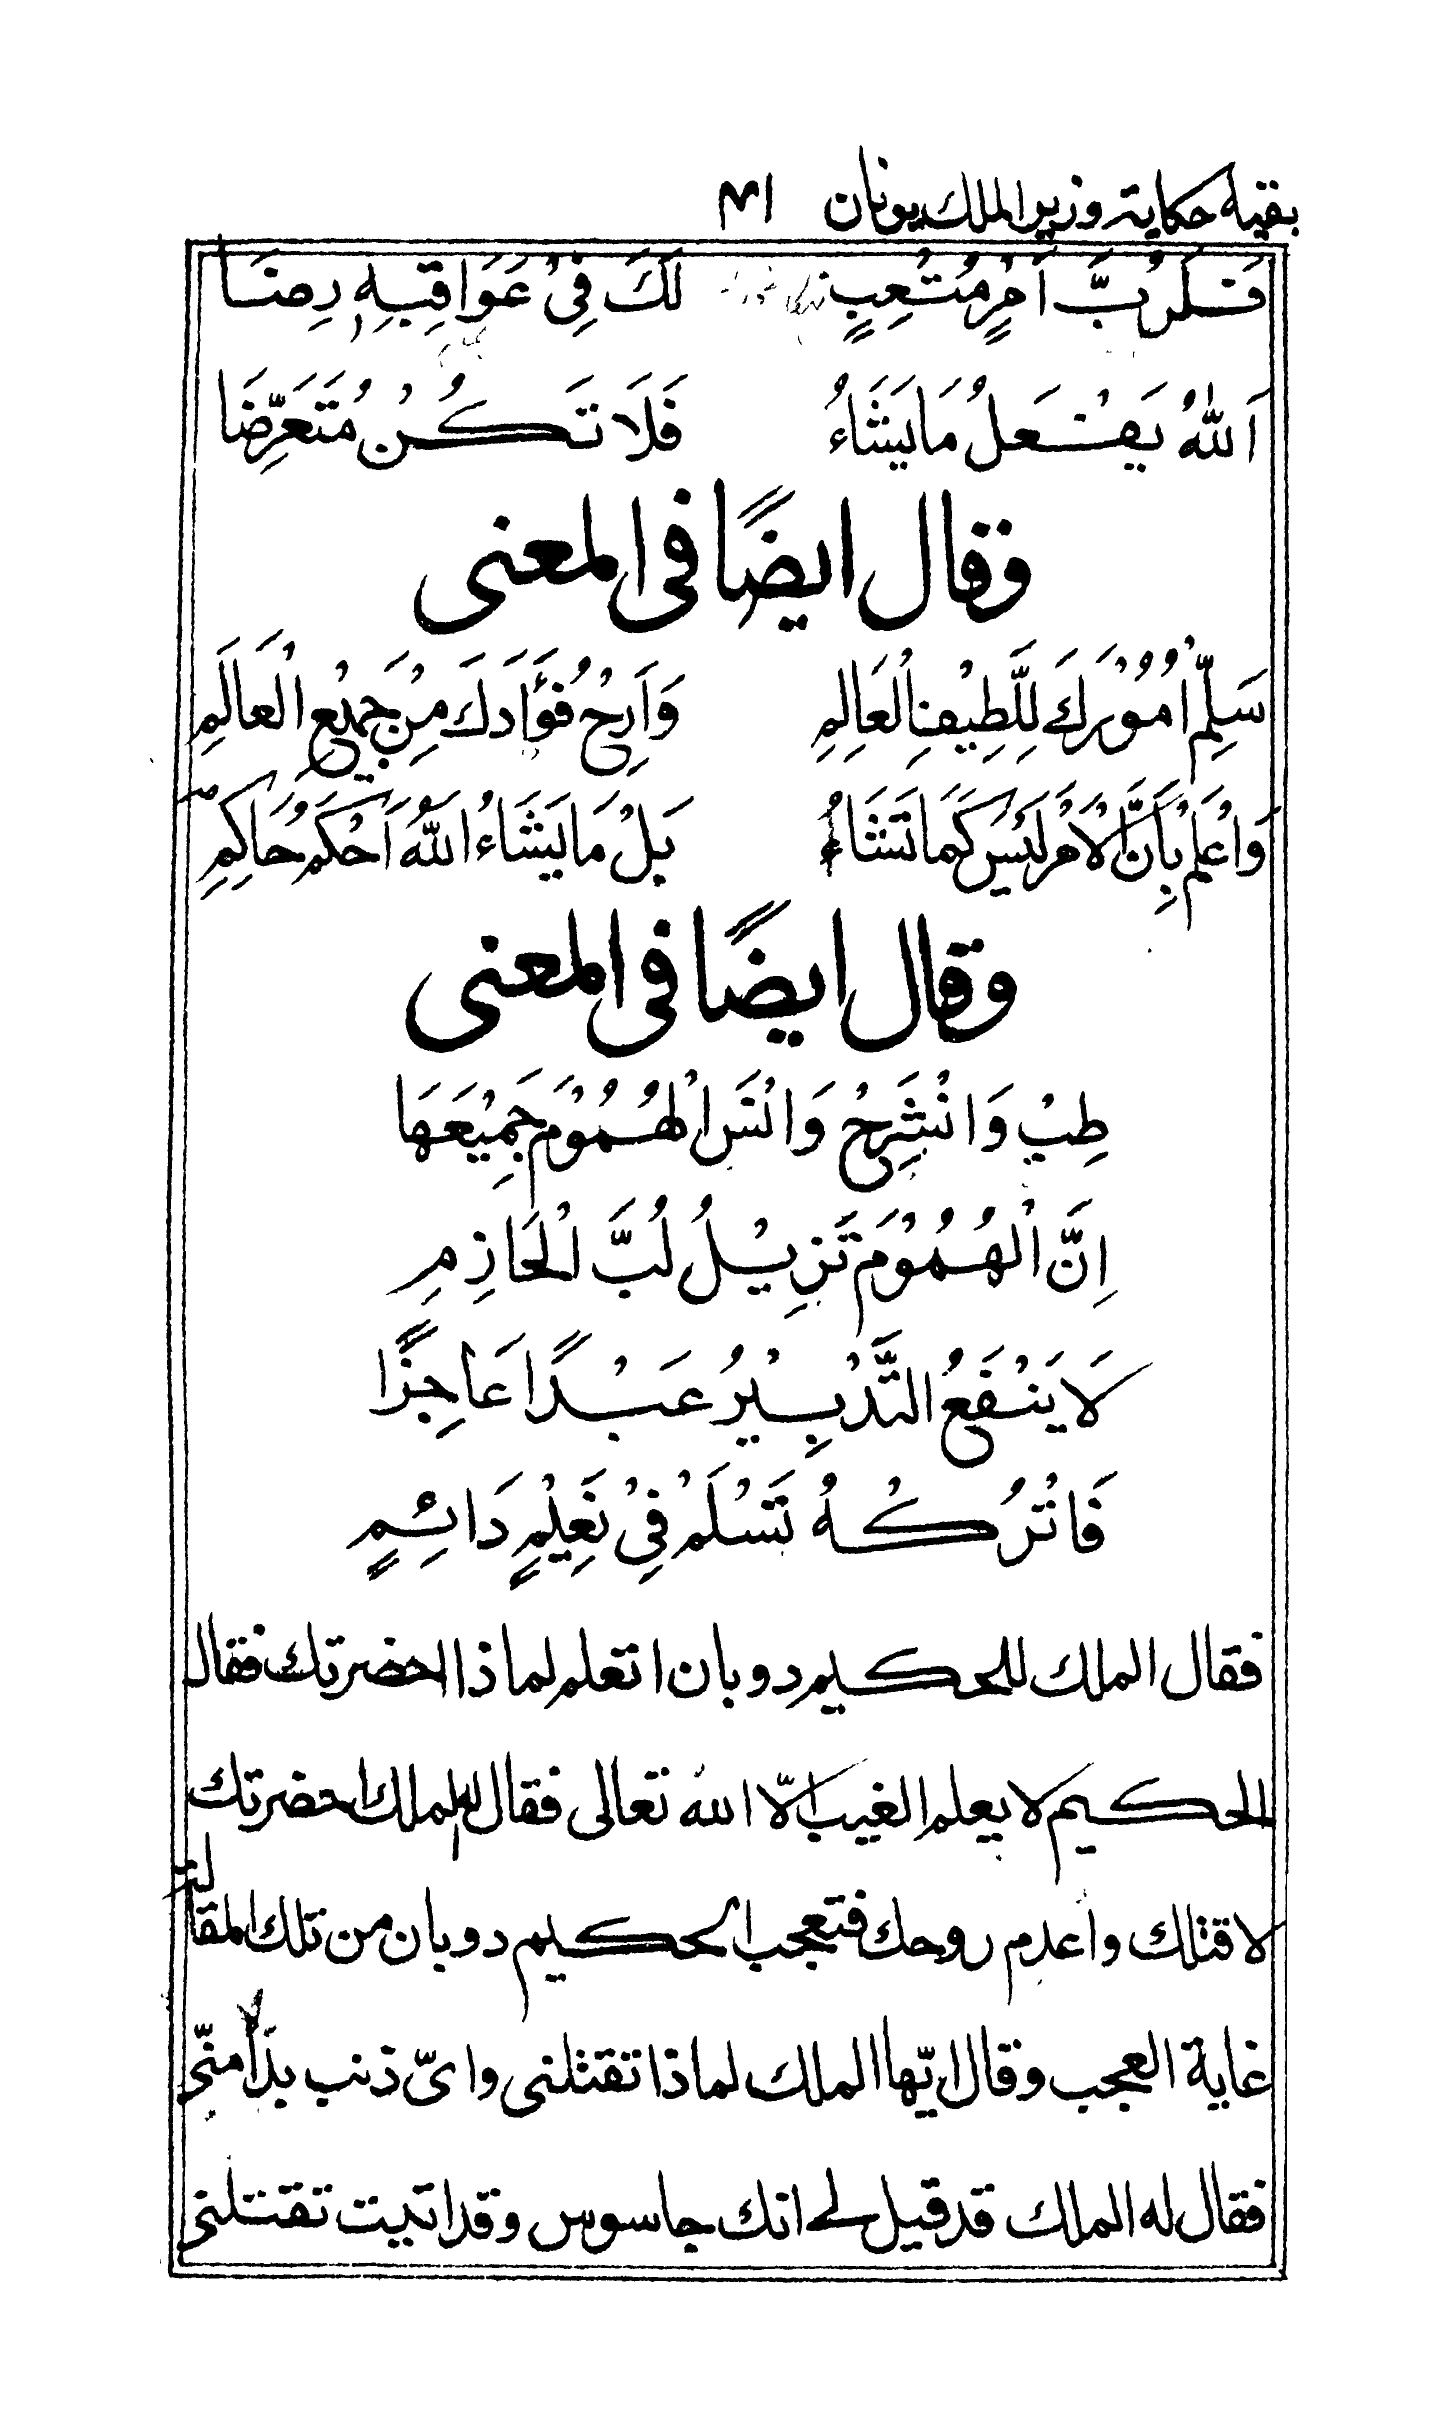 بقية حكاية وزير الملك يونان
فَلَرُبَّ اَمْرٍ مُتْعِبٍ لَكَ فِيْ عَوَاقِبِهِ رِضَا
اَللّٰهُ يَفْعَلُ مَا يَشَاءُ فَلَا تَكُنْ مُتَعَرِّضَا
وقال ايضًا فى المعنى
سَلِّمْ اُمُوْرَكَ لِلَّطِيْفِ الْعَالِمِ وَاَرِحْ فُؤَادَكَ مِنْ جَمِيْعِ الْعَالَمِ
وَاعْلَمْ بِاَنَّ الْاَمْرَ لَيْسَ كَمَا تَشَاءُ بَلْ مَا يَشَاءُ اللّٰهُ اَحْكَمُ حَاكِمِ
وقال ايضًا فى المعنى
طِبْ وَانْشَرِحْ وَانْسَ الْهُمُوْمَ جَمِيْعَهَا
اِنَّ الْهُمُوْمَ تَزِيْلُ لُبَّ الْحَازِمِ
لَا يَنْفَعُ التَّدْبِيْرُ عَبْدًا عَاجِزًا
فَاتْرُكْهُ تَسْلَمْ فِيْ نَعِيْمٍ دَائِمٍ
فقال الملك للحكيم دوبان اتعلم لماذا احضرتك فقال
الحكيم لا يعلم الغيب الّا الله تعالى فقال له الملك احضرتك
لاقتلك واعدم روحك فتعجب الحكيم دوبان من تلك المقالة
غاية العجب وقال ايّها الملك لماذا تقتلنى واىّ ذنب بدا منّى
فقال له الملك قد قيل لى انك جاسوس وقد اتيت تقتلنى